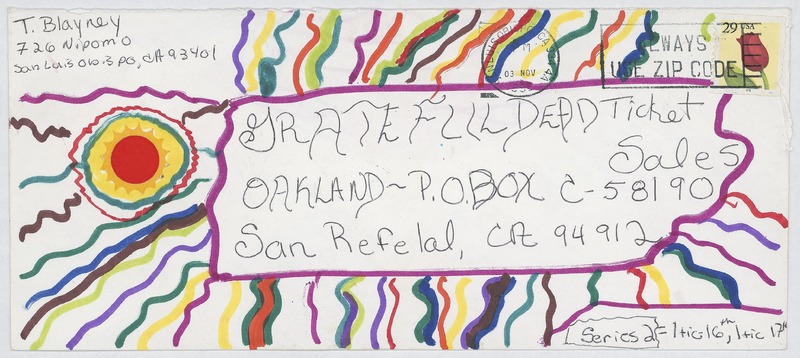 T. Blayney
726 Nipomo
San Louis Obispo, CA 93401
29 USA
03 NOV
ALWAYS
USE ZIP CODE
GRATEFUL DEAD Ticket
Sales
OAKLAND~P.O.BOX C-58190
San Refelal, CA 94912
Series 2=1tic16th, 1tic 17th